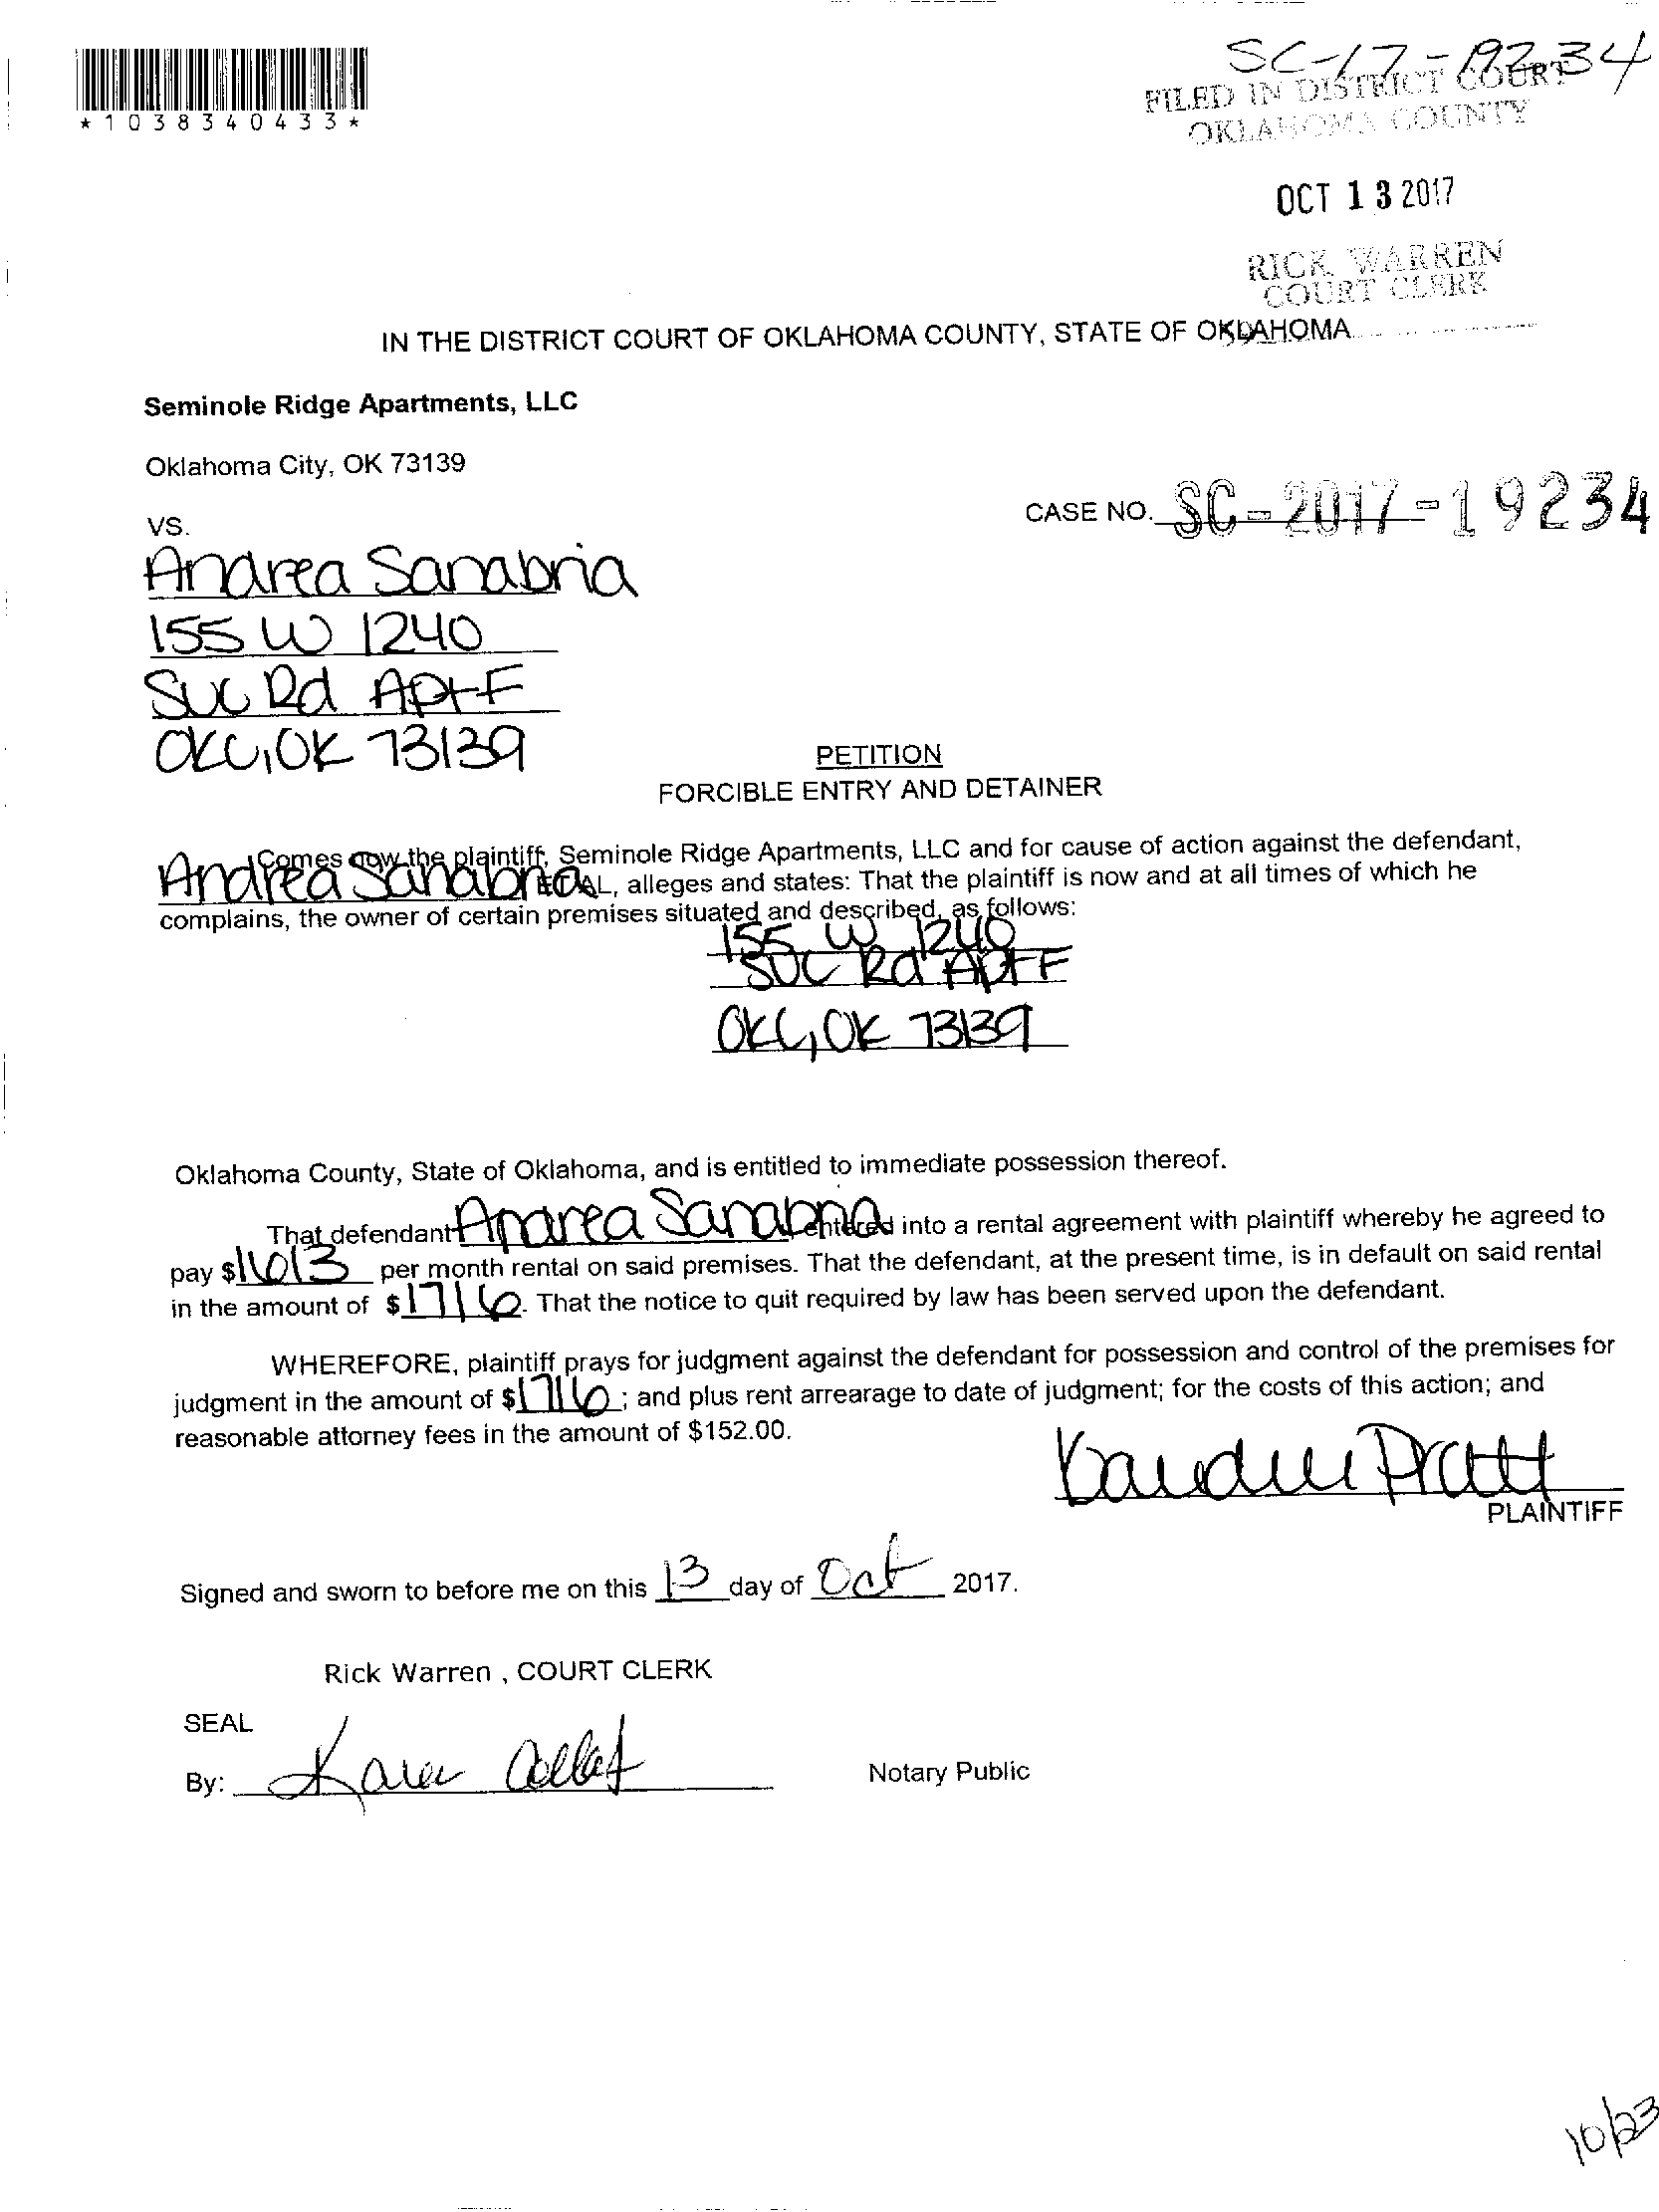 SC-17-19234
*1038340433*
FILED IN DISTRICT COURT
OKLAHOMA COUNTY
OCT 13 2017
RICK WARREN
COURT CLERK
IN THE DISTRICT COURT OF OKLAHOMA COUNTY, STATE OF OKLAHOMA
Seminole Ridge Apartments, LLC
Oklahoma City, OK 73139
CASE NO. SC-2017-19234
VS.
Andrea Sanabria
155 W 1240
Suc Rd Apt F
OKC, OK 73139
PETITION
FORCIBLE ENTRY AND DETAINER
Comes now the plaintiff, Seminole Ridge Apartments, LLC and for cause of action against the defendant,
Andrea Sanabria ET AL, alleges and states: That the plaintiff is now and at all times of which he
complains, the owner of certain premises situated and described, as follows:
155 W 1240
Suc Rd Apt F
OKC, OK 73139
Oklahoma County, State of Oklahoma, and is entitled to immediate possession thereof.
That defendant Andrea Sanabria entered into a rental agreement with plaintiff whereby he agreed to
pay $1613 per month rental on said premises. That the defendant, at the present time, is in default on said rental
in the amount of $1716. That the notice to quit required by law has been served upon the defendant.
WHEREFORE, plaintiff prays for judgment against the defendant for possession and control of the premises for
judgment in the amount of $1716; and plus rent arrearage to date of judgment; for the costs of this action; and
reasonable attorney fees in the amount of $152.00.
Pratt
PLAINTIFF
Signed and sworn to before me on this 13 day of Oct 2017.
Rick Warren , COURT CLERK
SEAL
By: Karen
Notary Public
10/23